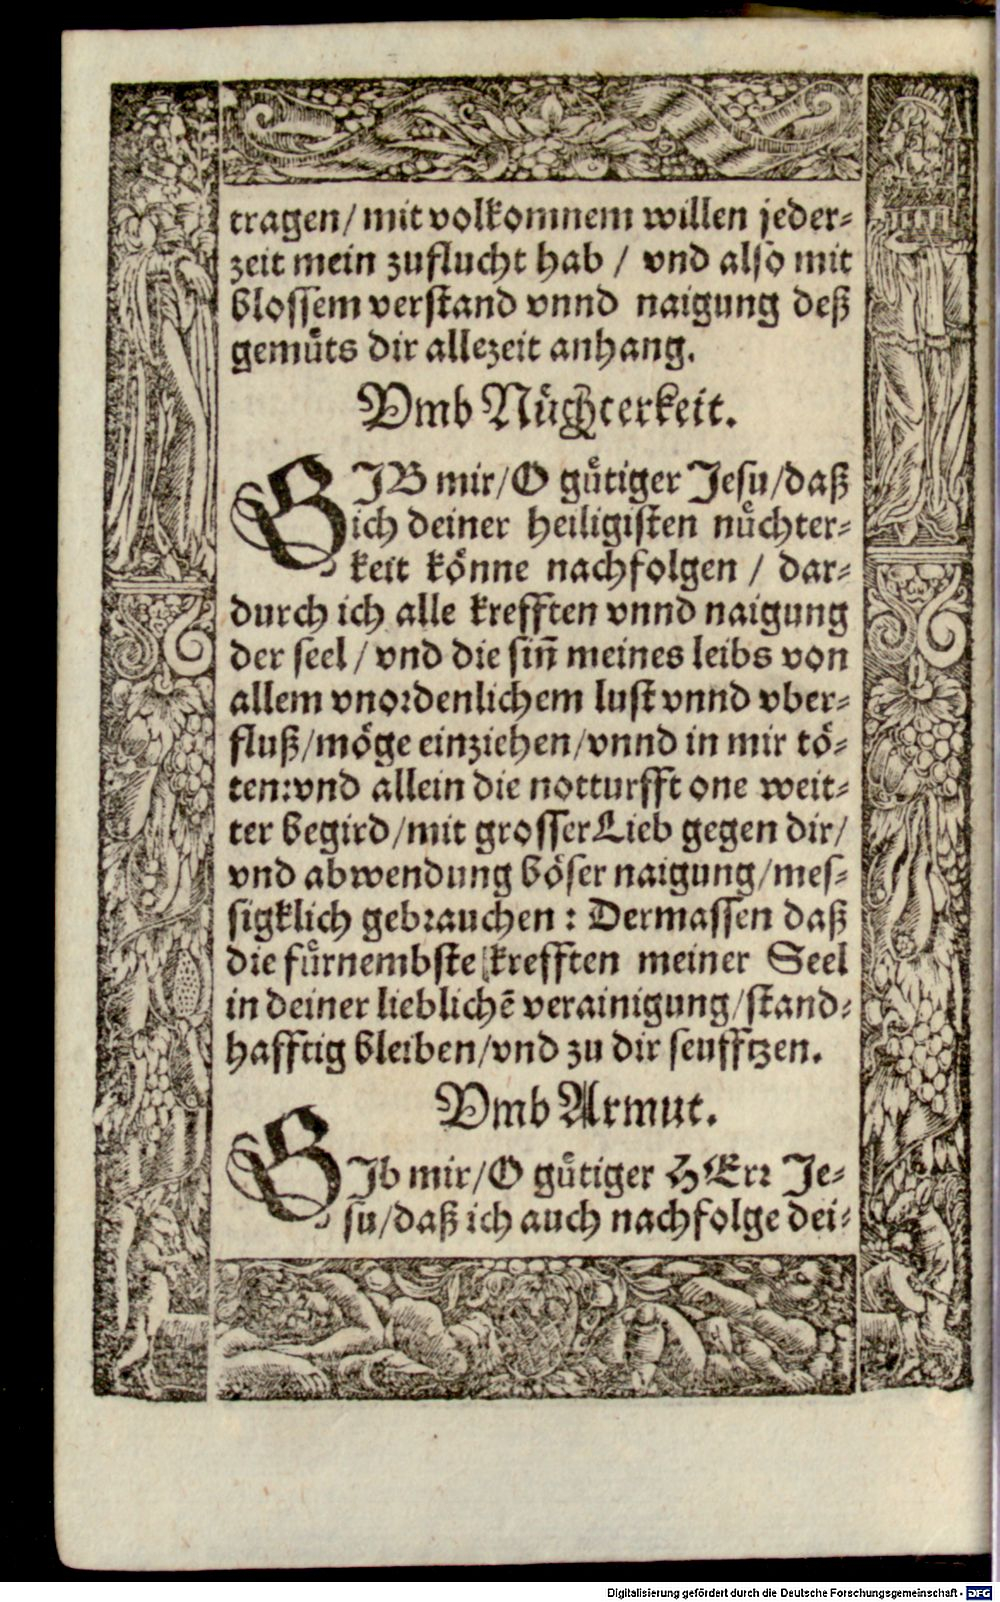 tragen/ mit volkomnem willen jeder⸗
zeit mein zuflucht hab / vnd also mit
blossem verstand vnnd naigung deß
gemuͤts dir allezeit anhang.
Vmb Nuͤchterkeit.
GIB mir/O guͤtiger Jesu/daß
ich deiner heiligisten nuͤchter⸗
keit koͤnne nachfolgen / dar⸗
durch ich alle krefften vnnd naigung
der seel / vnd die sin̄ meines leibs von
allem vnordenlichem lust vnnd vber⸗
fluß/moͤge einziehen/vnnd in mir toͤ⸗
ten:vnd allein die notturfft one weit⸗
ter begird/mit grosser Lieb gegen dir/
vnd abwendung boͤser naigung/mes⸗
sigklich gebrauchen : Dermassen daß
die fuͤrnembste krefften meiner Seel
in deiner lieblichē verainigung/stand⸗
hafftig bleiben/vnd zu dir seufftzen.
Vmb Armut.
GIb mir/O guͤtiger HErr Je⸗
su/daß ich auch nachfolge dei⸗
Digitalisierung gefördert durch die Deutsche Forschungsgemeinschaft - DFG